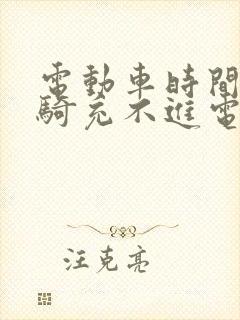 電動車時間
騎充不進電
汪克亮